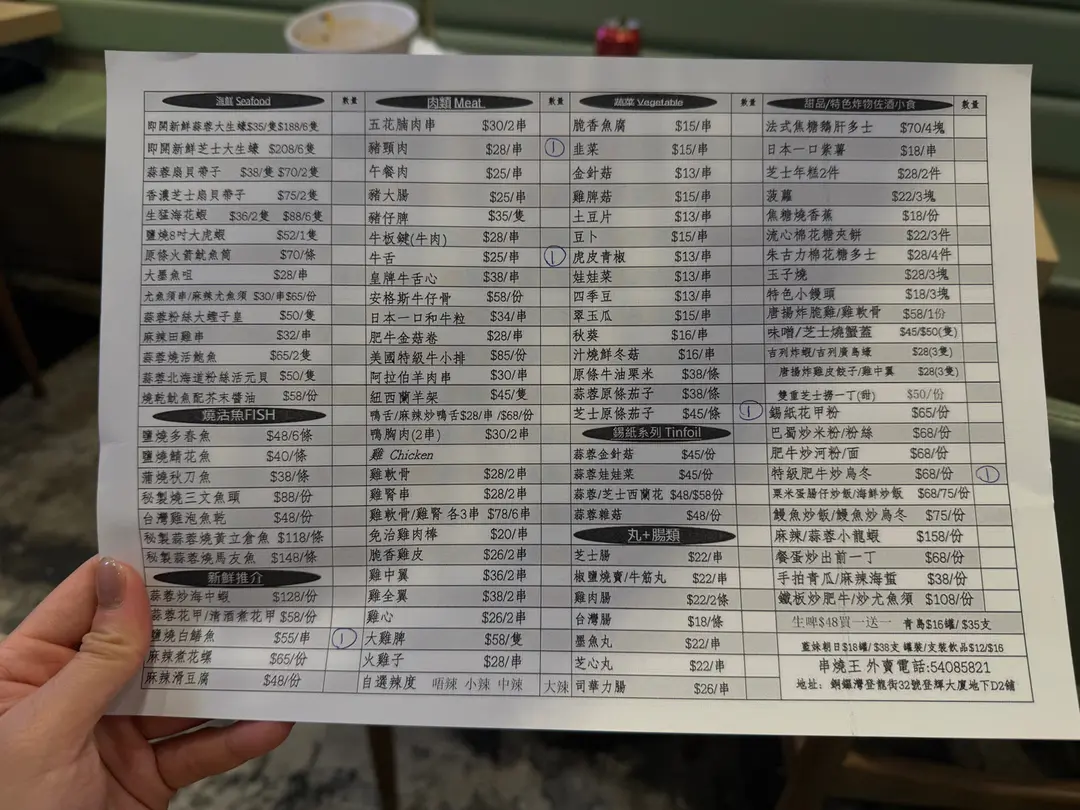 海鮮 Seafood 數量
即開新鮮蒜蓉大生蠔$35/隻$188/6隻
即開新鮮芝士大生蠔 $208/6隻
蒜蓉扇貝帶子 $38/隻 $70/2隻
香濃芝士扇貝帶子 $75/2隻
生猛海花蝦 $36/2隻 $88/6隻
鹽燒8吋大虎蝦 $52/1隻
原條火箭魷魚筒 $70/條
大墨魚咀 $28/串
尤魚須串/麻辣尤魚須 $30/串$65/份
蒜蓉粉絲大蟶子皇 $50/隻
麻辣田雞串 $32/串
蒜蓉燒活鮑魚 $65/2隻
蒜蓉北海道粉絲活元貝 $50/隻
燒乾魷魚配芥末醬油 $58/份
燒活魚FISH
鹽燒多春魚 $48/6條
鹽燒鯖花魚 $40/條
蒲燒秋刀魚 $38/條
秘製燒三文魚頭 $88/份
台灣雞泡魚乾 $48/份
秘製蒜蓉燒黃立倉魚 $118/條
秘製蒜蓉燒馬友魚 $148/條
新鮮推介
蒜蓉炒海中蝦 $128/份
蒜蓉花甲/清酒煮花甲 $58/份
鹽燒白鱔魚 $55/串 1
麻辣煮花螺 $65/份
麻辣滑豆腐 $48/份
肉類 Meat 數量
五花腩肉串 $30/2串
豬頸肉 $28/串 1
午餐肉 $25/串
豬大腸 $25/串
豬仔脾 $35/隻
牛板鍵(牛肉) $28/串
牛舌 $25/串 1
皇牌牛舌心 $38/串
安格斯牛仔骨 $58/份
日本一口和牛粒 $34/串
肥牛金菇卷 $28/串
美國特級牛小排 $85/份
阿拉伯羊肉串 $30/串
紐西蘭羊架 $45/隻
鴨舌/麻辣炒鴨舌$28/串/$68/份
鴨胸肉(2串) $30/2串
雞 Chicken
雞軟骨 $28/2串
雞腎串 $28/2串
雞軟骨/雞腎 各3串 $78/6串
免治雞肉棒 $20/串
脆香雞皮 $26/2串
雞中翼 $36/2串
雞全翼 $38/2串
雞心 $26/2串
大雞脾 $58/隻
火雞子 $28/串
自選辣度 唔辣 小辣 中辣 大辣
蔬菜 Vegetable 數量
脆香魚腐 $15/串
韭菜 $15/串
金針菇 $13/串
雞脾菇 $15/串
土豆片 $13/串
豆卜 $15/串
虎皮青椒 $13/串
娃娃菜 $13/串
四季豆 $13/串
翠玉瓜 $15/串
秋葵 $16/串
汁燒鮮冬菇 $16/串
原條牛油栗米 $38/條
蒜蓉原條茄子 $38/條
芝士原條茄子 $45/條 1
錫紙系列 Tinfoil
蒜蓉金針菇 $45/份
蒜蓉娃娃菜 $45/份
蒜蓉/芝士西蘭花 $48/$58份
蒜蓉雜菇 $48/份
丸+腸類
芝士腸 $22/串
椒鹽燒賣/牛筋丸 $22/串
雞肉腸 $22/2條
台灣腸 $18/條
墨魚丸 $22/串
芝心丸 $22/串
司華力腸 $26/串
甜品/特色炸物佐酒小食 數量
法式焦糖鵝肝多士 $70/4塊
日本一口紫薯 $18/串
芝士年糕2件 $28/2件
菠蘿 $22/3塊
焦糖燒香蕉 $18/份
流心棉花糖夾餅 $22/3件
朱古力棉花糖多士 $28/4件
玉子燒 $28/3塊
特色小饅頭 $18/3塊
唐揚炸脆雞/雞軟骨 $58/1份
味噌/芝士燒蟹蓋 $45/$50(隻)
吉列炸蝦/吉列廣島蠔 $28(3隻)
唐揚炸雞皮餃子/雞中翼 $28(3隻)
雙重芝士撈一丁(甜) $50/份
錫紙花甲粉 $65/份
巴蜀炒米粉/粉絲 $68/份
肥牛炒河粉/面 $68/份
特級肥牛炒烏冬 $68/份 1
粟米蛋腸仔炒飯/海鮮炒飯 $68/75/份
鰻魚炒飯/鰻魚炒烏冬 $75/份
麻辣/蒜蓉小龍蝦 $158/份
餐蛋炒出前一丁 $68/份
手拍青瓜/麻辣海蜇 $38/份
鐵板炒肥牛/炒尤魚須 $108/份
生啤$48買一送一 青島$16罐/ $35支
藍妹朝日$18罐/ $38支 罐裝/支裝飲品$12/$16
串燒王 外賣電話:54085821
地址: 銅鑼灣登龍街32號登輝大廈地下D2舖